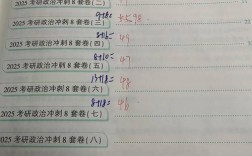 2025 考研政治冲刺 8 套卷(二)
2025 考研政治冲刺 8 套卷(三)
8+16= 49
2025 考研政治冲刺 8 套卷(四)
8+12= 47
2025 考研政治冲刺 8 套卷(五)
13+18= 48
2025 考研政治冲刺 8 套卷(六)
8+18= 46
2025 考研政治冲刺 8 套卷(七)
2025 考研政治冲刺 8 套卷(八)